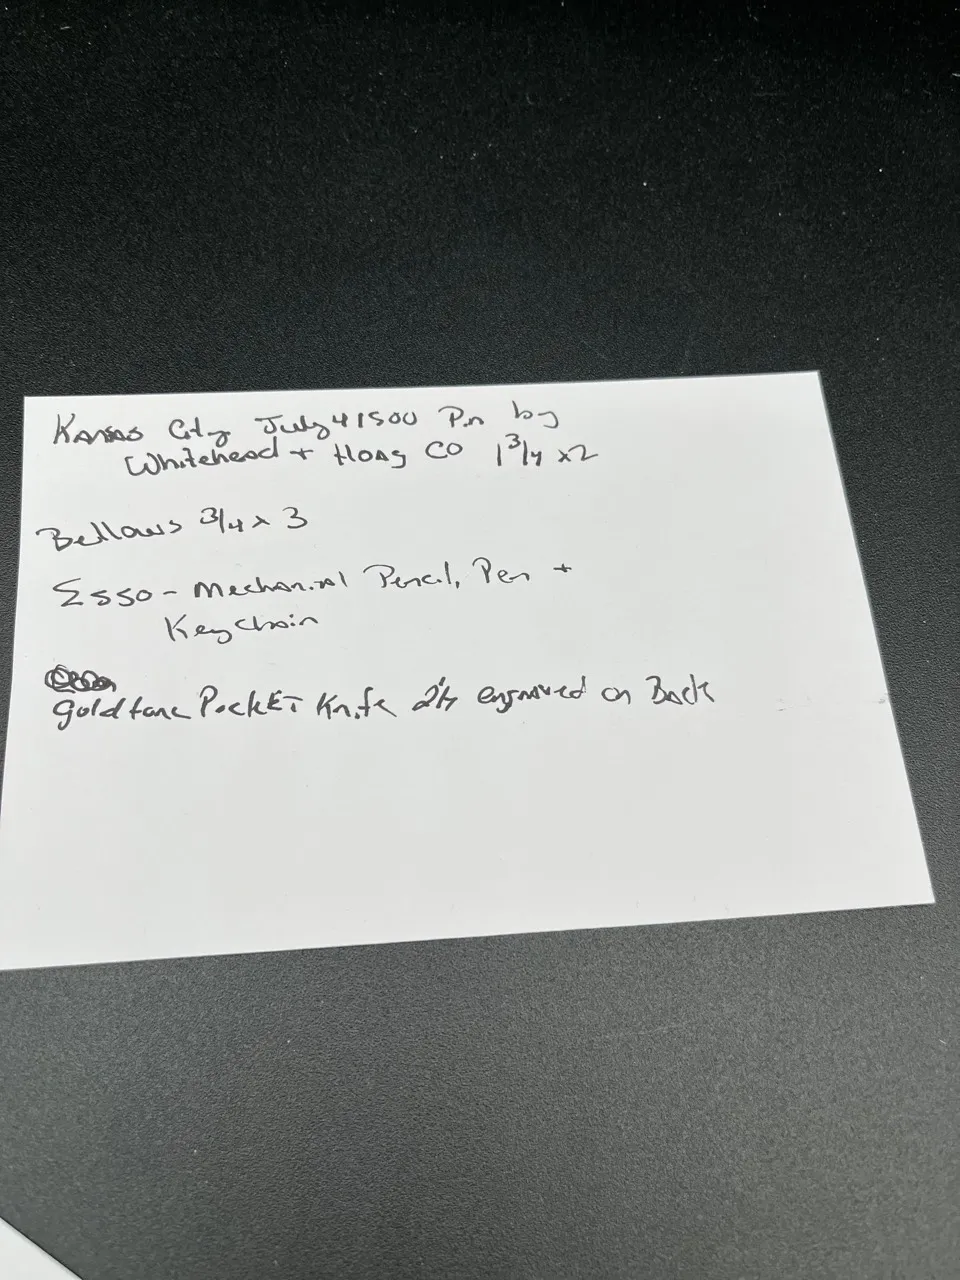 Kansas City July 4 1900 Pin by
Whitehead + Hoag CO 1 3/4 x 2
Bellows 3/4 x 3
Esso - Mechanical Pencil, Pen +
Keychain
goldtone Pocket Knife engraved on Back